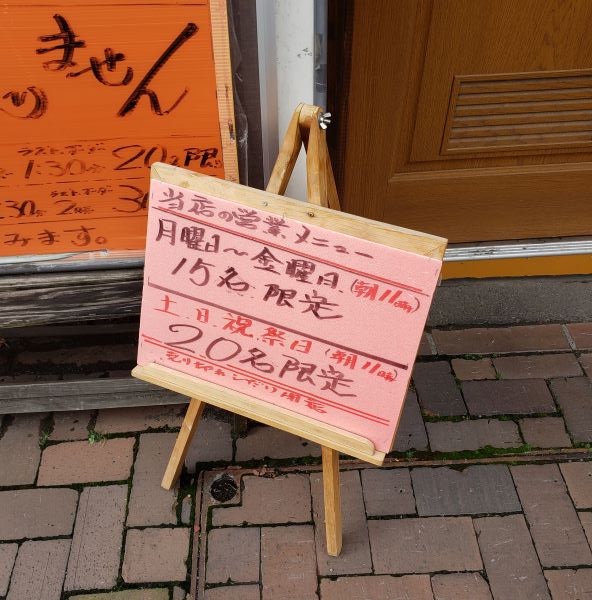 ません
ラストオーダー
1:30 20名限
ラストオーダー
30 2時 30
みます。
当店の営業メニュー
月曜日〜金曜日(朝11時)
15名限定
土日祝祭日(朝11時)
20名限定